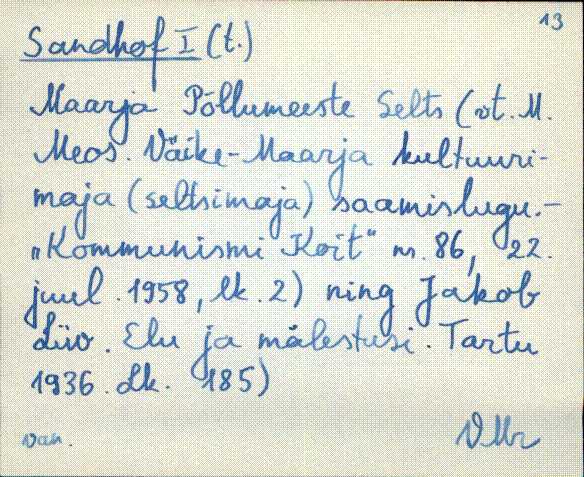 13
Sandhof I (t.)
Maarja Põllumeeste Selts (vt. M.
Meos. Väike-Maarja kultuuri-
maja (seltsimaja) saamislugu.-
„Kommunismi Koit" nr. 86, 22.
juul. 1958, lk. 2) ning Jakob
Liiv. Elu ja mälestusi. Tartu
1936. Lk. 185)
van.